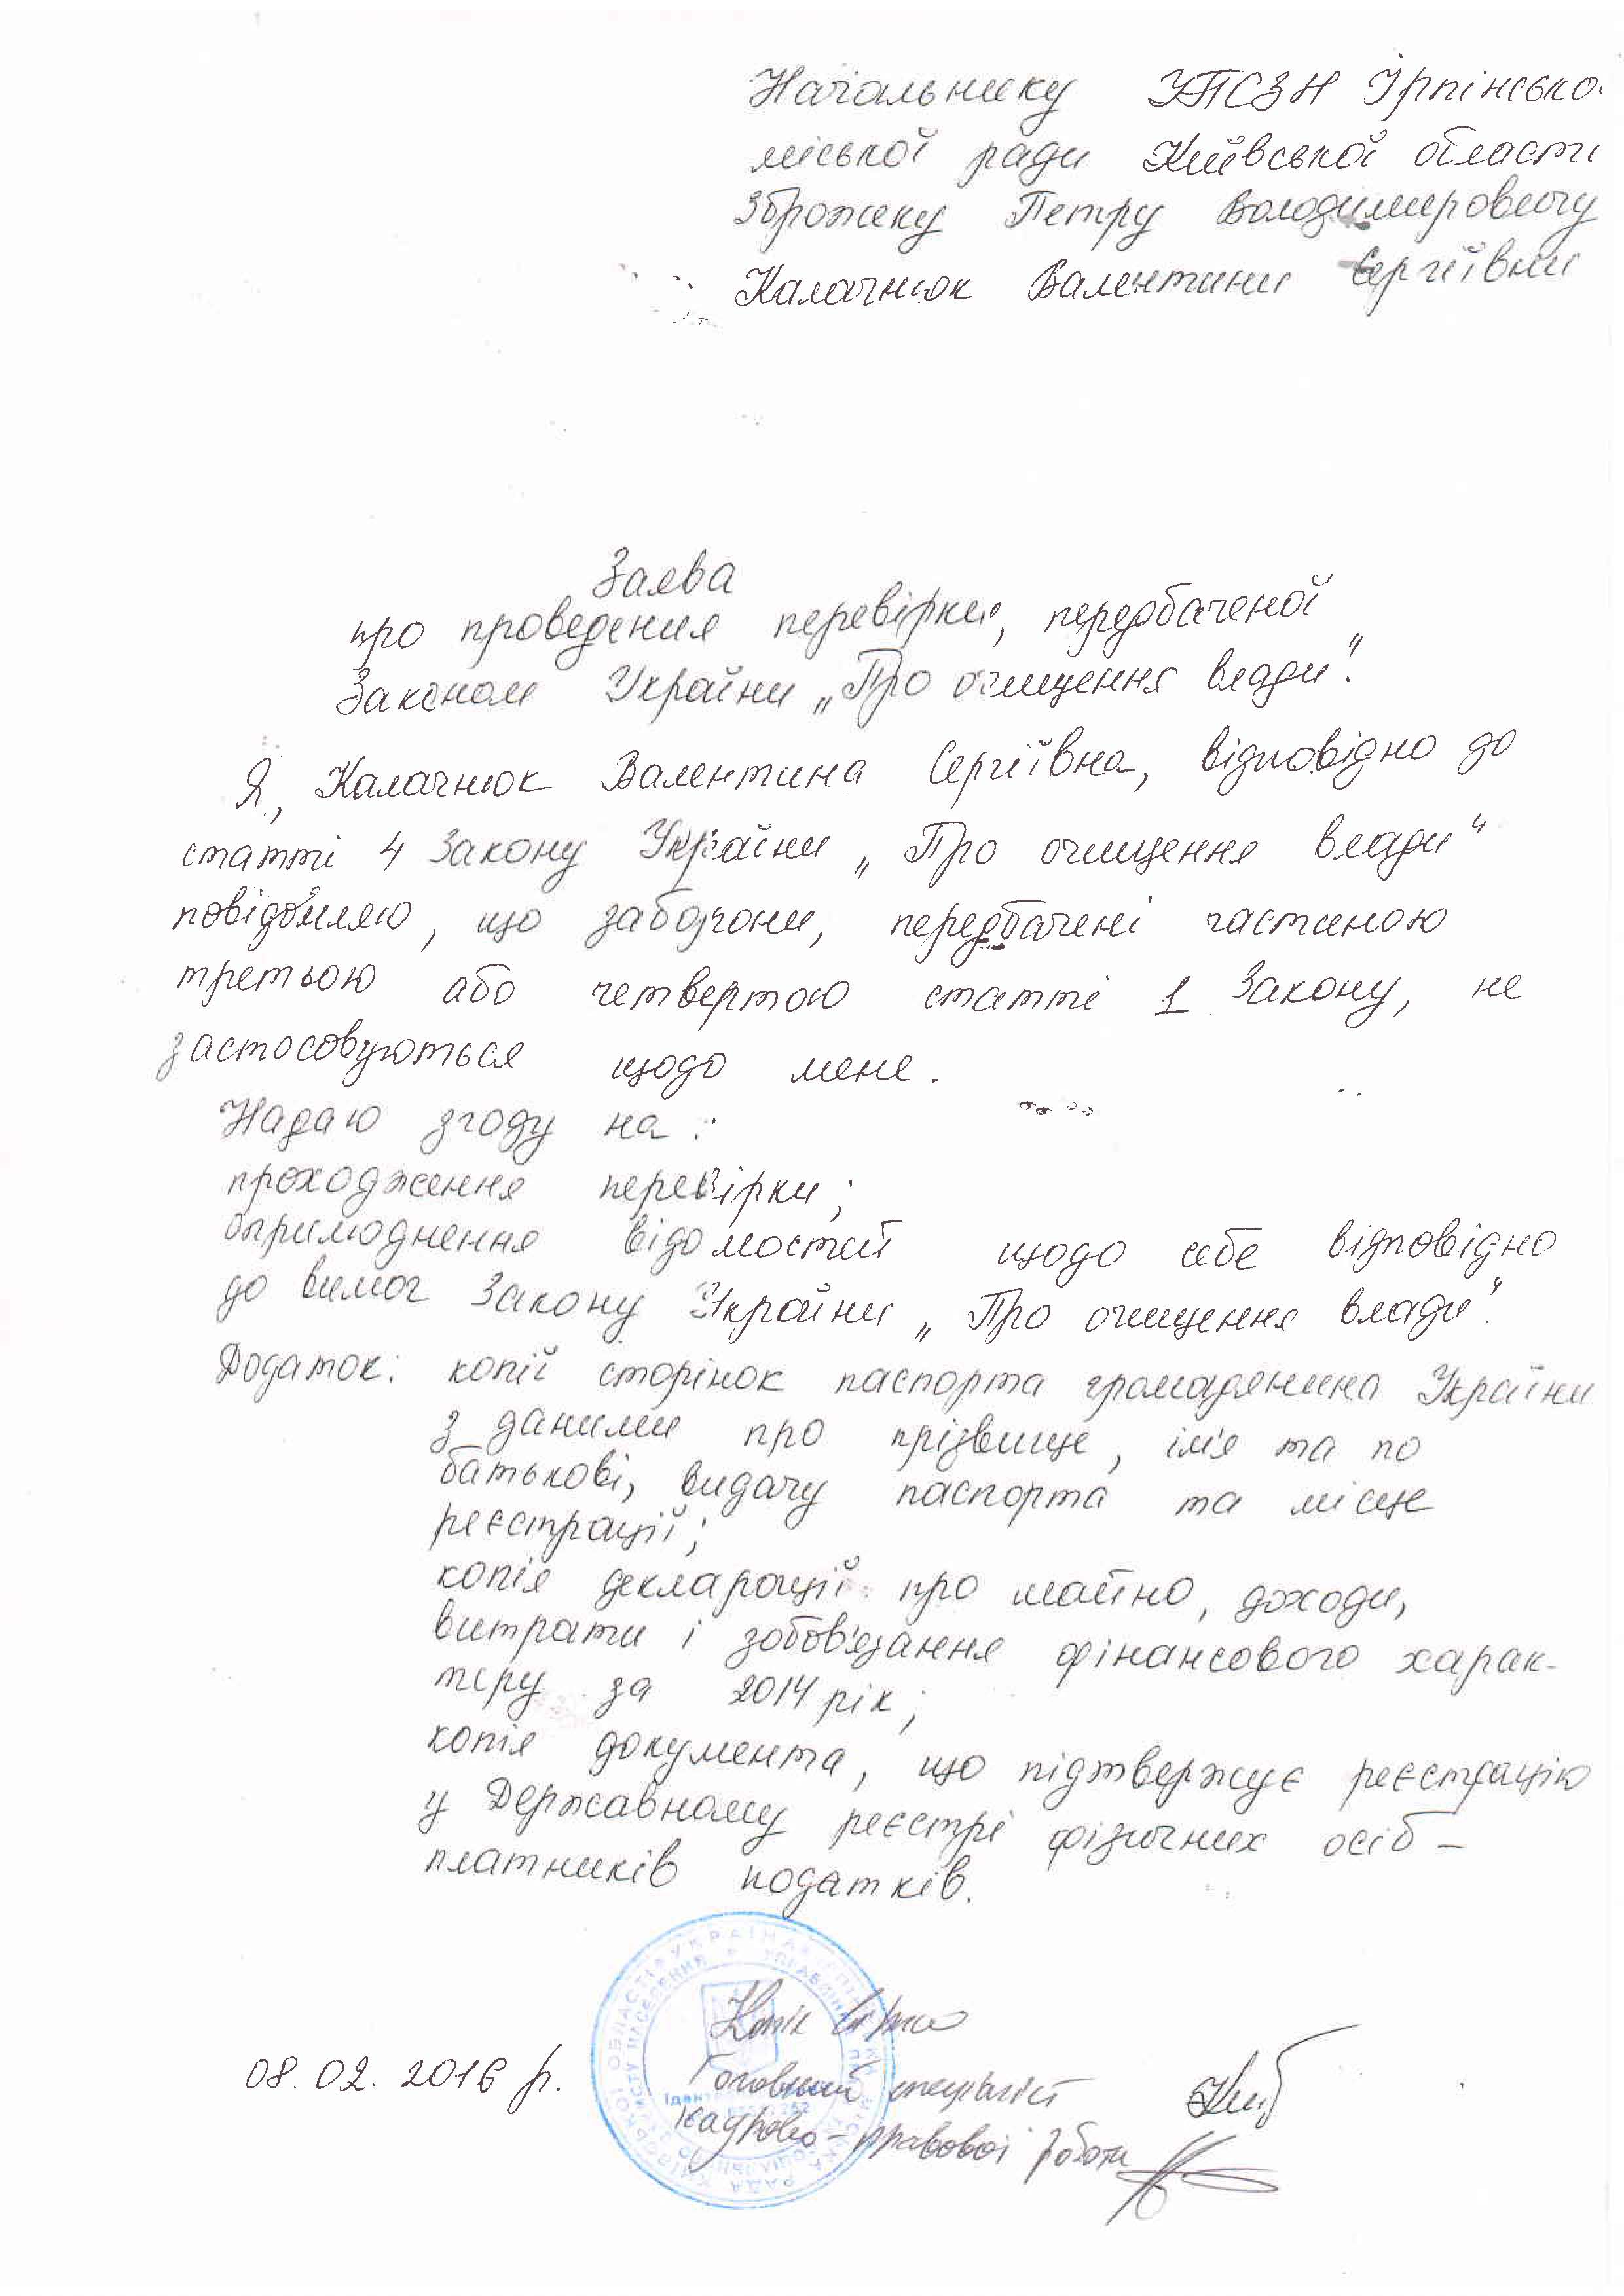 Начальнику УПСЗН Ірпінсько
міської ради Київської області
Зброжеку Петру Володимировичу
Калачнюк Валентини Сергіївни
Заява
про проведення перевірки, передбаченої
Законом України „Про очищення влади".
Я, Калачнюк Валентина Сергіївна, відповідно до
статті 4 Закону України „Про очищення влади"
повідомляю, що заборони, передбачені частиною
третьою або четвертою статті 1 Закону, не
застосовуються щодо мене.
Надаю згоду на:
проходження перевірки;
оприлюднення відомостей щодо себе відповідно
до вимог Закону України „Про очищення влади".
Додаток: копії сторінок паспорта громадянина України
з даними про прізвище, ім'я та по
батькові, видачу паспорта та місце
реєстрації;
копія декларації про майно, доходи,
витрати і зобов'язання фінансового харак-
теру за 2014 рік;
копія документа, що підтвержує реєстрацію
у Державному реєстрі фізичних осіб -
платників податків.
08.02.2016 р.
Копія вірна
Головний спеціаліст
кадрово-правової роботи